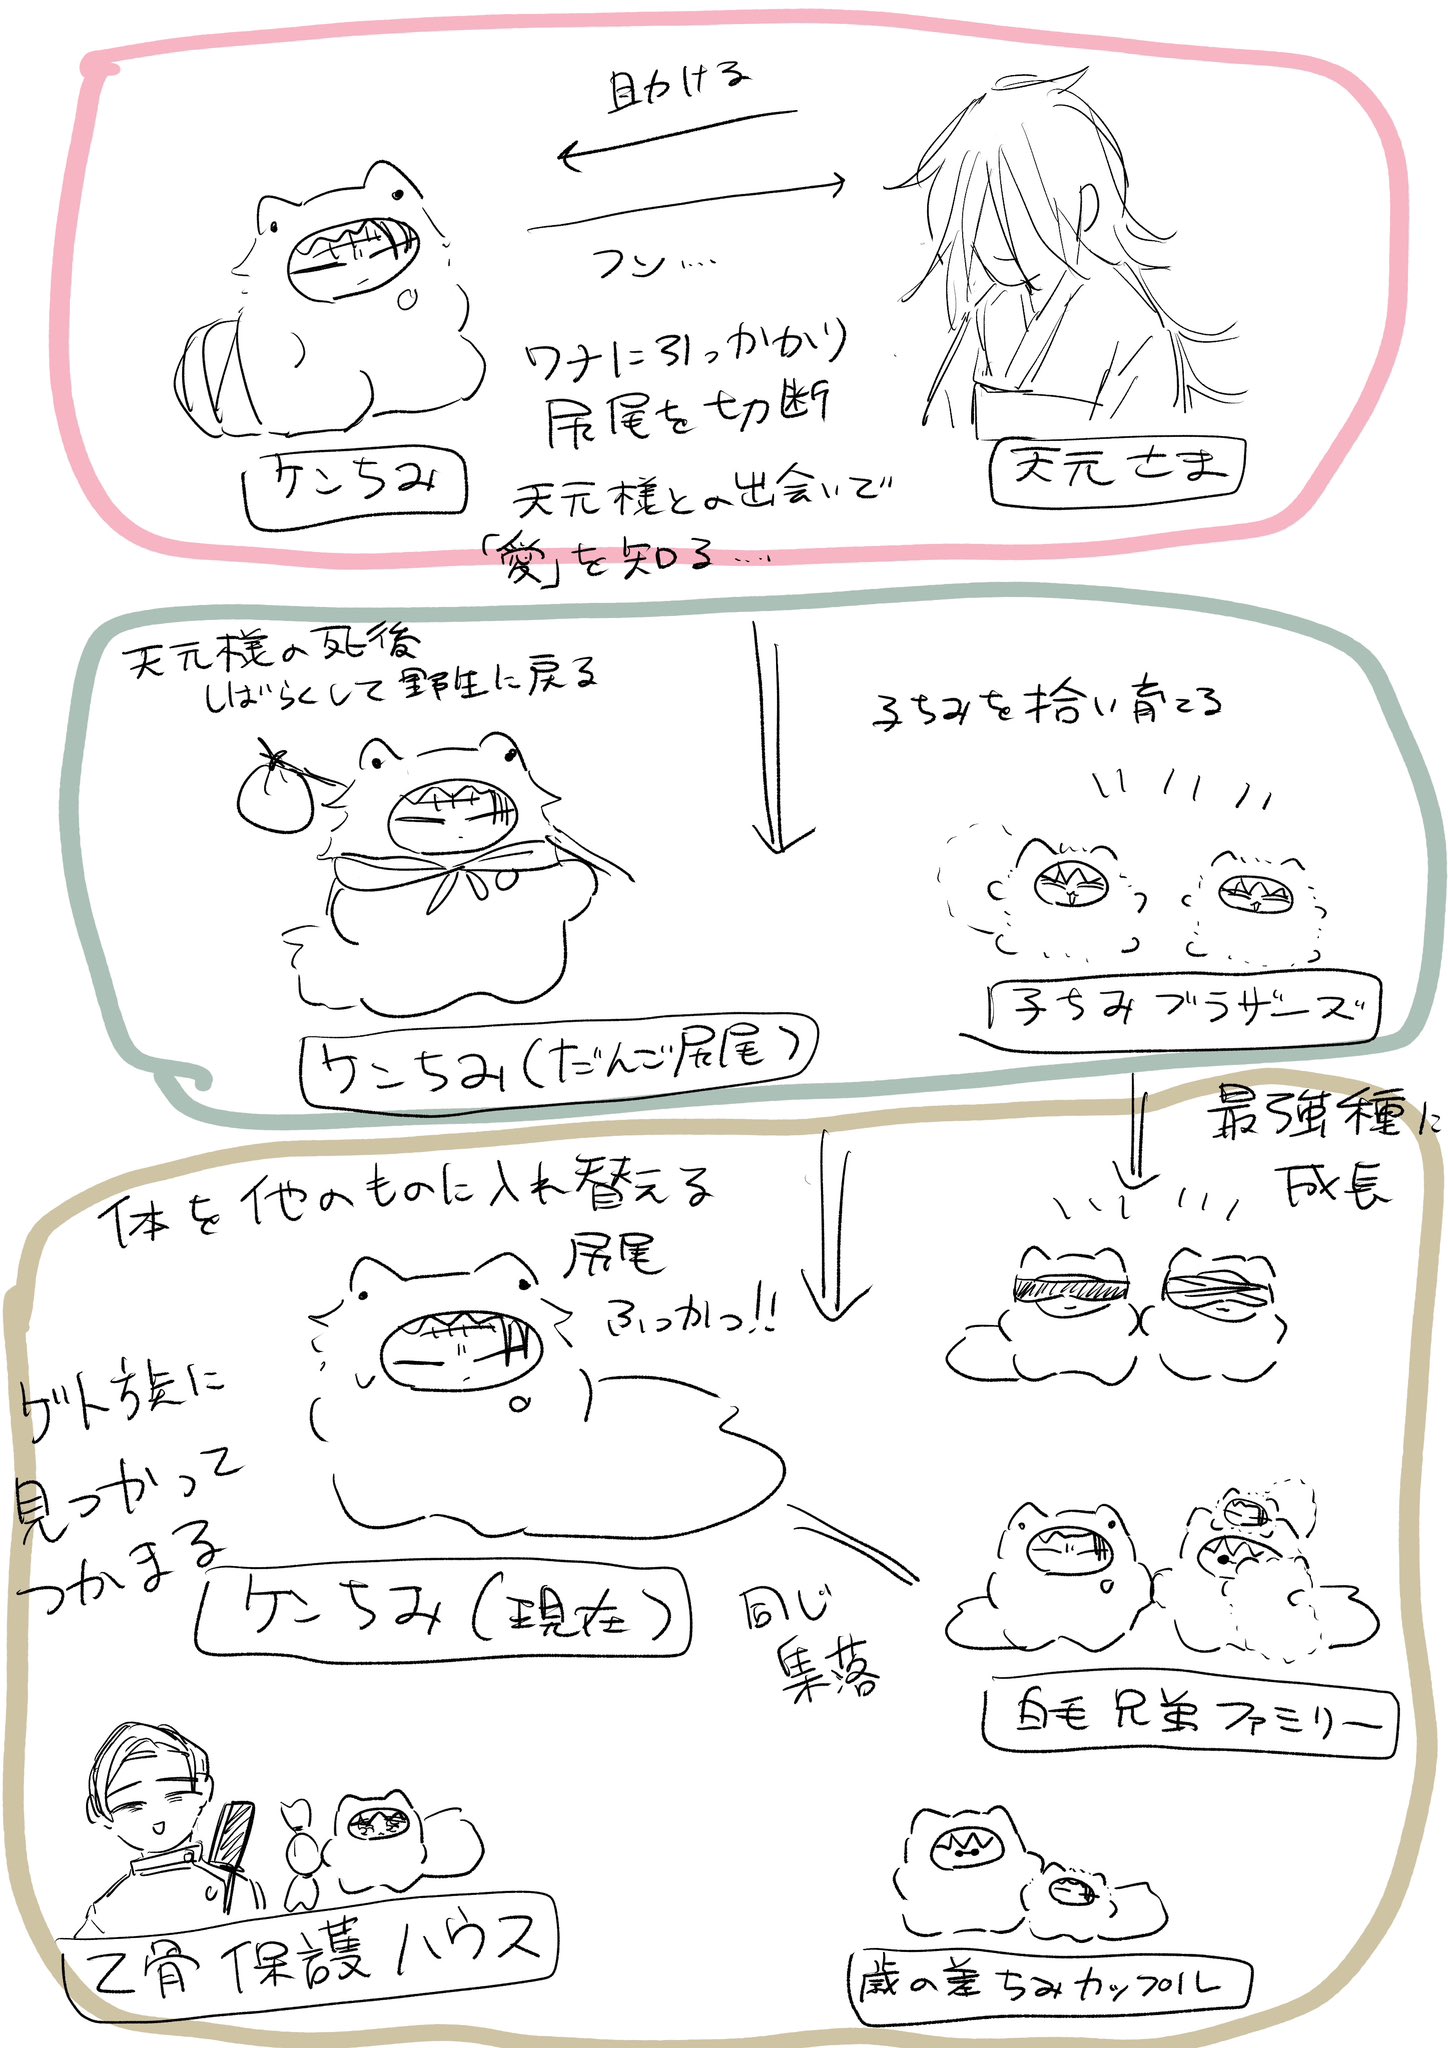 助ける
フン…
ワナに引っかかり
尻尾を切断
天元様との出会いで
「愛」を知る…
ケンちみ
天元さま
天元様の死後
しばらくして野生に戻る
子ちみを拾い育てる
ケンちみ(だんご尻尾)
子ちみブラザーズ
最強種に
成長
体を他のものに入れ替える
尻尾
ふっかつ!!
ゲト族に
見つかって
つかまる
ケンちみ(現在)
同じ
集落
白毛兄弟ファミリー
乙骨保護ハウス
歳の差ちみカップル